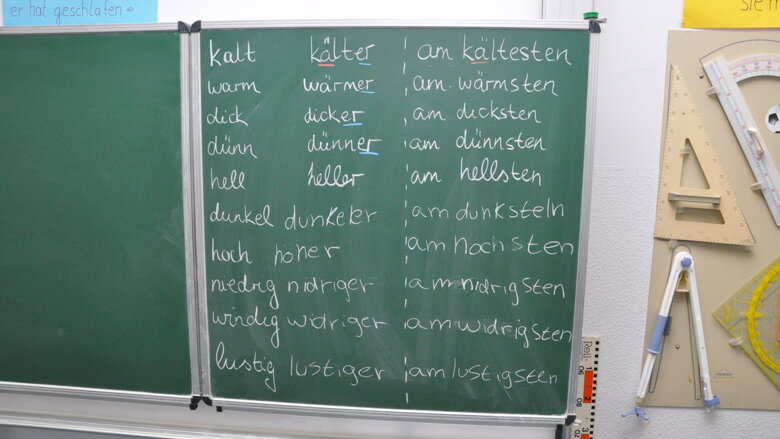 er hat geschlafen
kalt kälter am kältesten
warm wärmer am wärmsten
dick dicker am dicksten
dünn dünner am dünnsten
hell heller am hellsten
dunkel dunkeler am dunksteln
hoch höher am hochsten
niedrig nidriger am nidrigsten
windig widriger am widrigsten
lustig lustiger am lustigsten